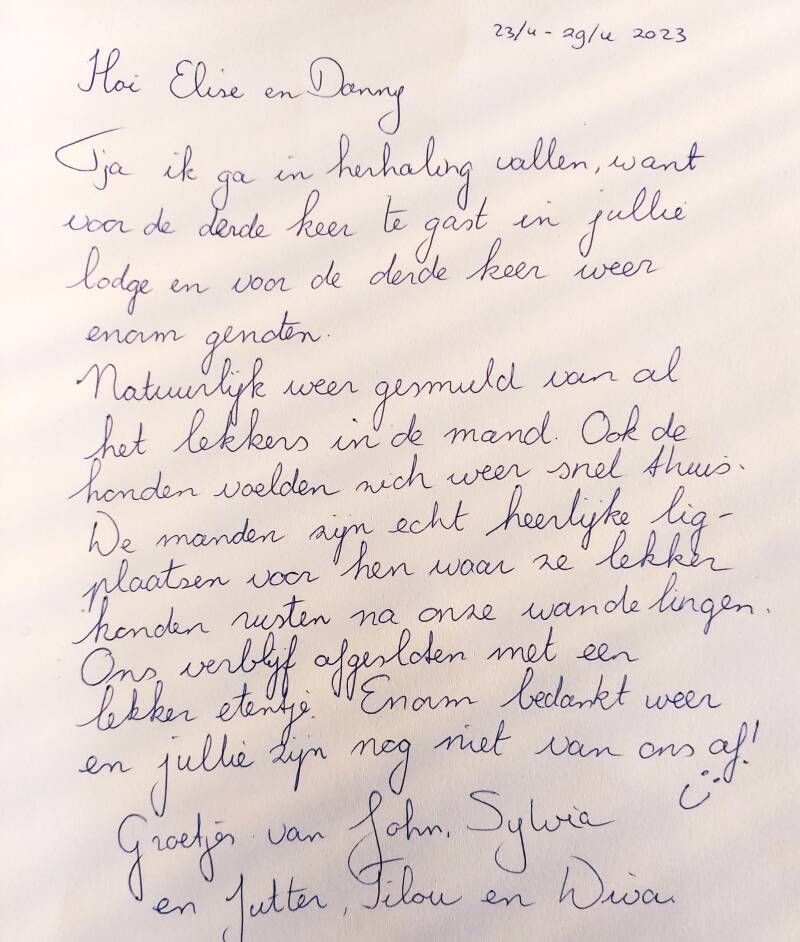 23/4 - 29/4 2023
Hoi Elise en Danny
Tja ik ga in herhaling vallen, want
voor de derde keer te gast in jullie
lodge en voor de derde keer weer
enorm genoten.
Natuurlijk weer gesmuld van al
het lekkers in de mand. Ook de
honden voelden zich weer snel thuis.
De manden zijn echt heerlijke lig-
plaatsen voor hen waar ze lekker
konden rusten na onze wandelingen.
Ons verblijf afgesloten met een
lekker etentje. Enorm bedankt weer
en jullie zijn nog niet van ons af!
Groetjes van John, Sylvia
en Jutter, Tilou en Diva.